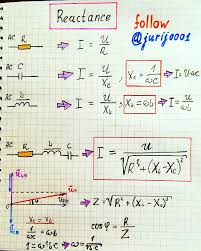 Reactance
follow
@jurij0001
AC R
I = U/R
AC C
I = U/Xc , Xc = 1/ωC
I = U·ωC
AC L
I = U/XL , XL = ωL
I = U/ωL
AC R L C
I = U/√R²+(XL-Xc)²
Z = √R²+(XL-Xc)²
cosφ = R/Z
Xc = XL
1/ωC = ωL
1 = ω²LC